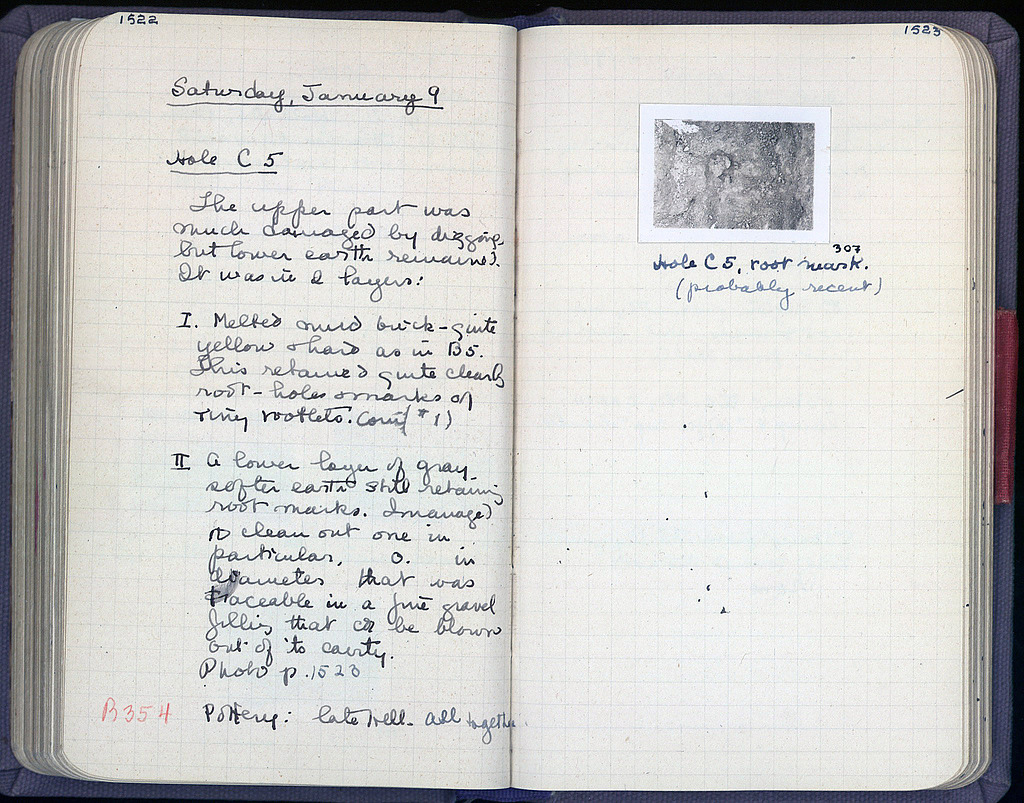 1522
Saturday, January 9
Hole C 5
The upper part was
much damaged by digging,
but lower earth remained.
It was in 2 layers:
I. Melted mud brick - quite
yellow & hard as in B5.
This retained quite clearly
root-holes & marks of
tiny rootlets. (#1)
II A lower layer of gray
softer earth still retaining
root marks. I managed
to clean out one in
particular, 0. in
diameter that was
traceable in a fine gravel
filling that could be blown
out of its cavity.
Photo p. 1523
B 354 Pottery: late Hell. all together.
1523
307
Hole C 5, root mark.
(probably recent)